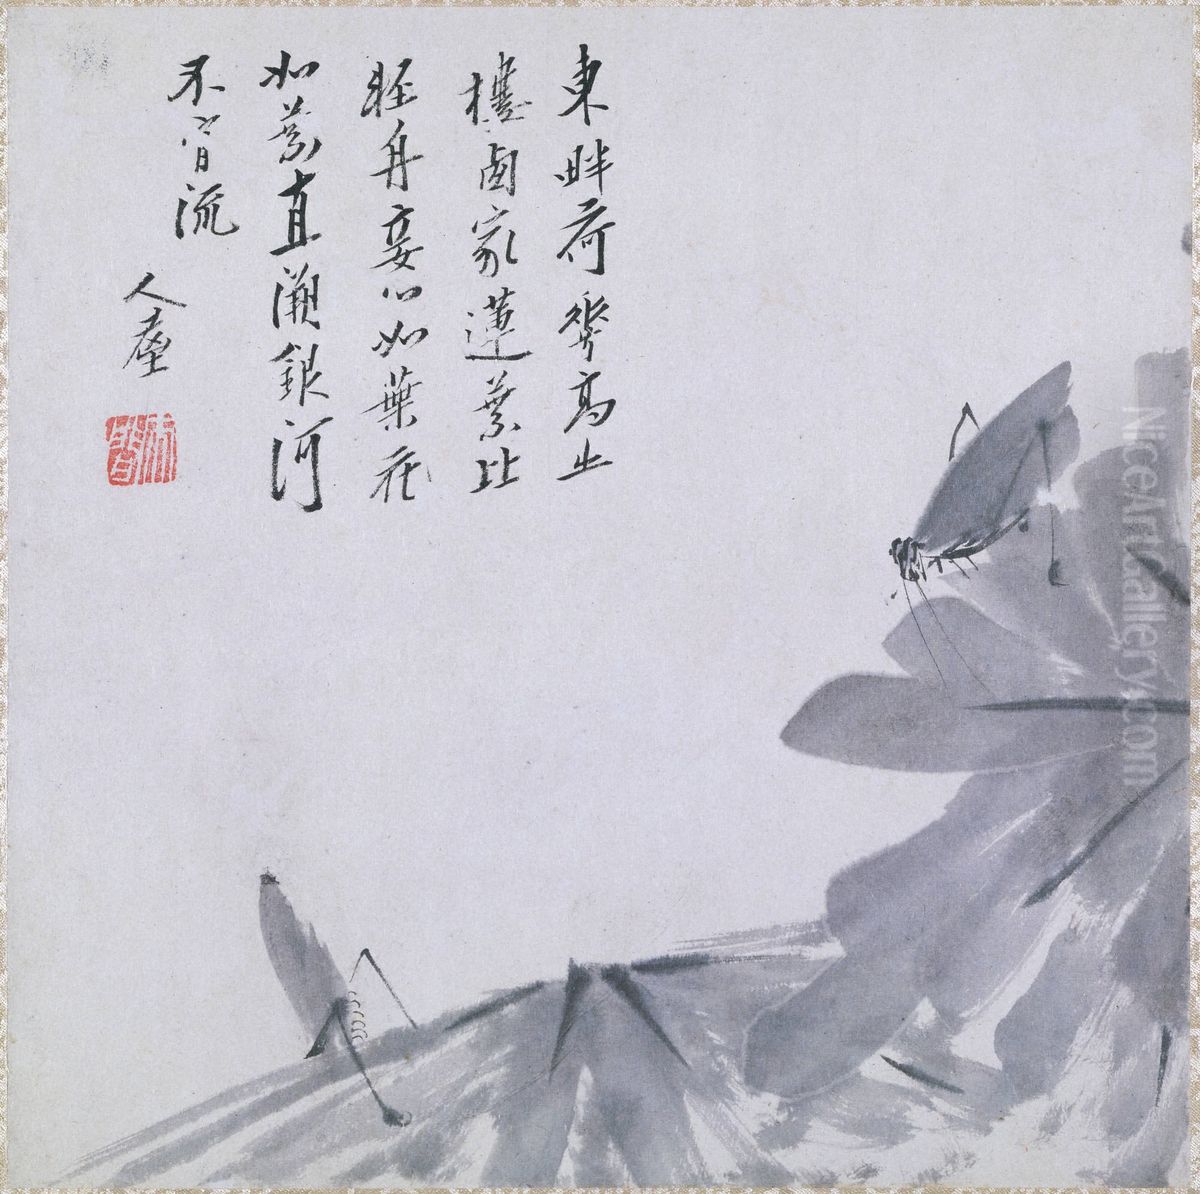 東畔荷華高出
樓西家蓮葉比
輕舟妾心如葉花
如葉直溯銀河
不肯流
人屋
NiceArtGallery.com